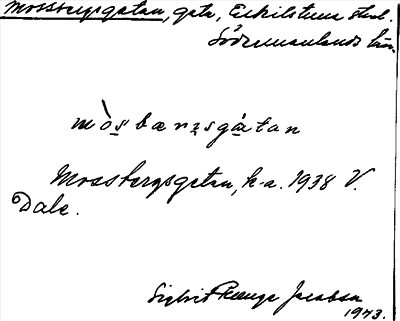 Mossbergsgatan, gata, Eskilstuna stad.
Södermanlands län.
mòs bærsgátan
Mossbergsgatan, k-a. 1938 V.
Dale.
Sigbrit Plænge Jacobson
1973.